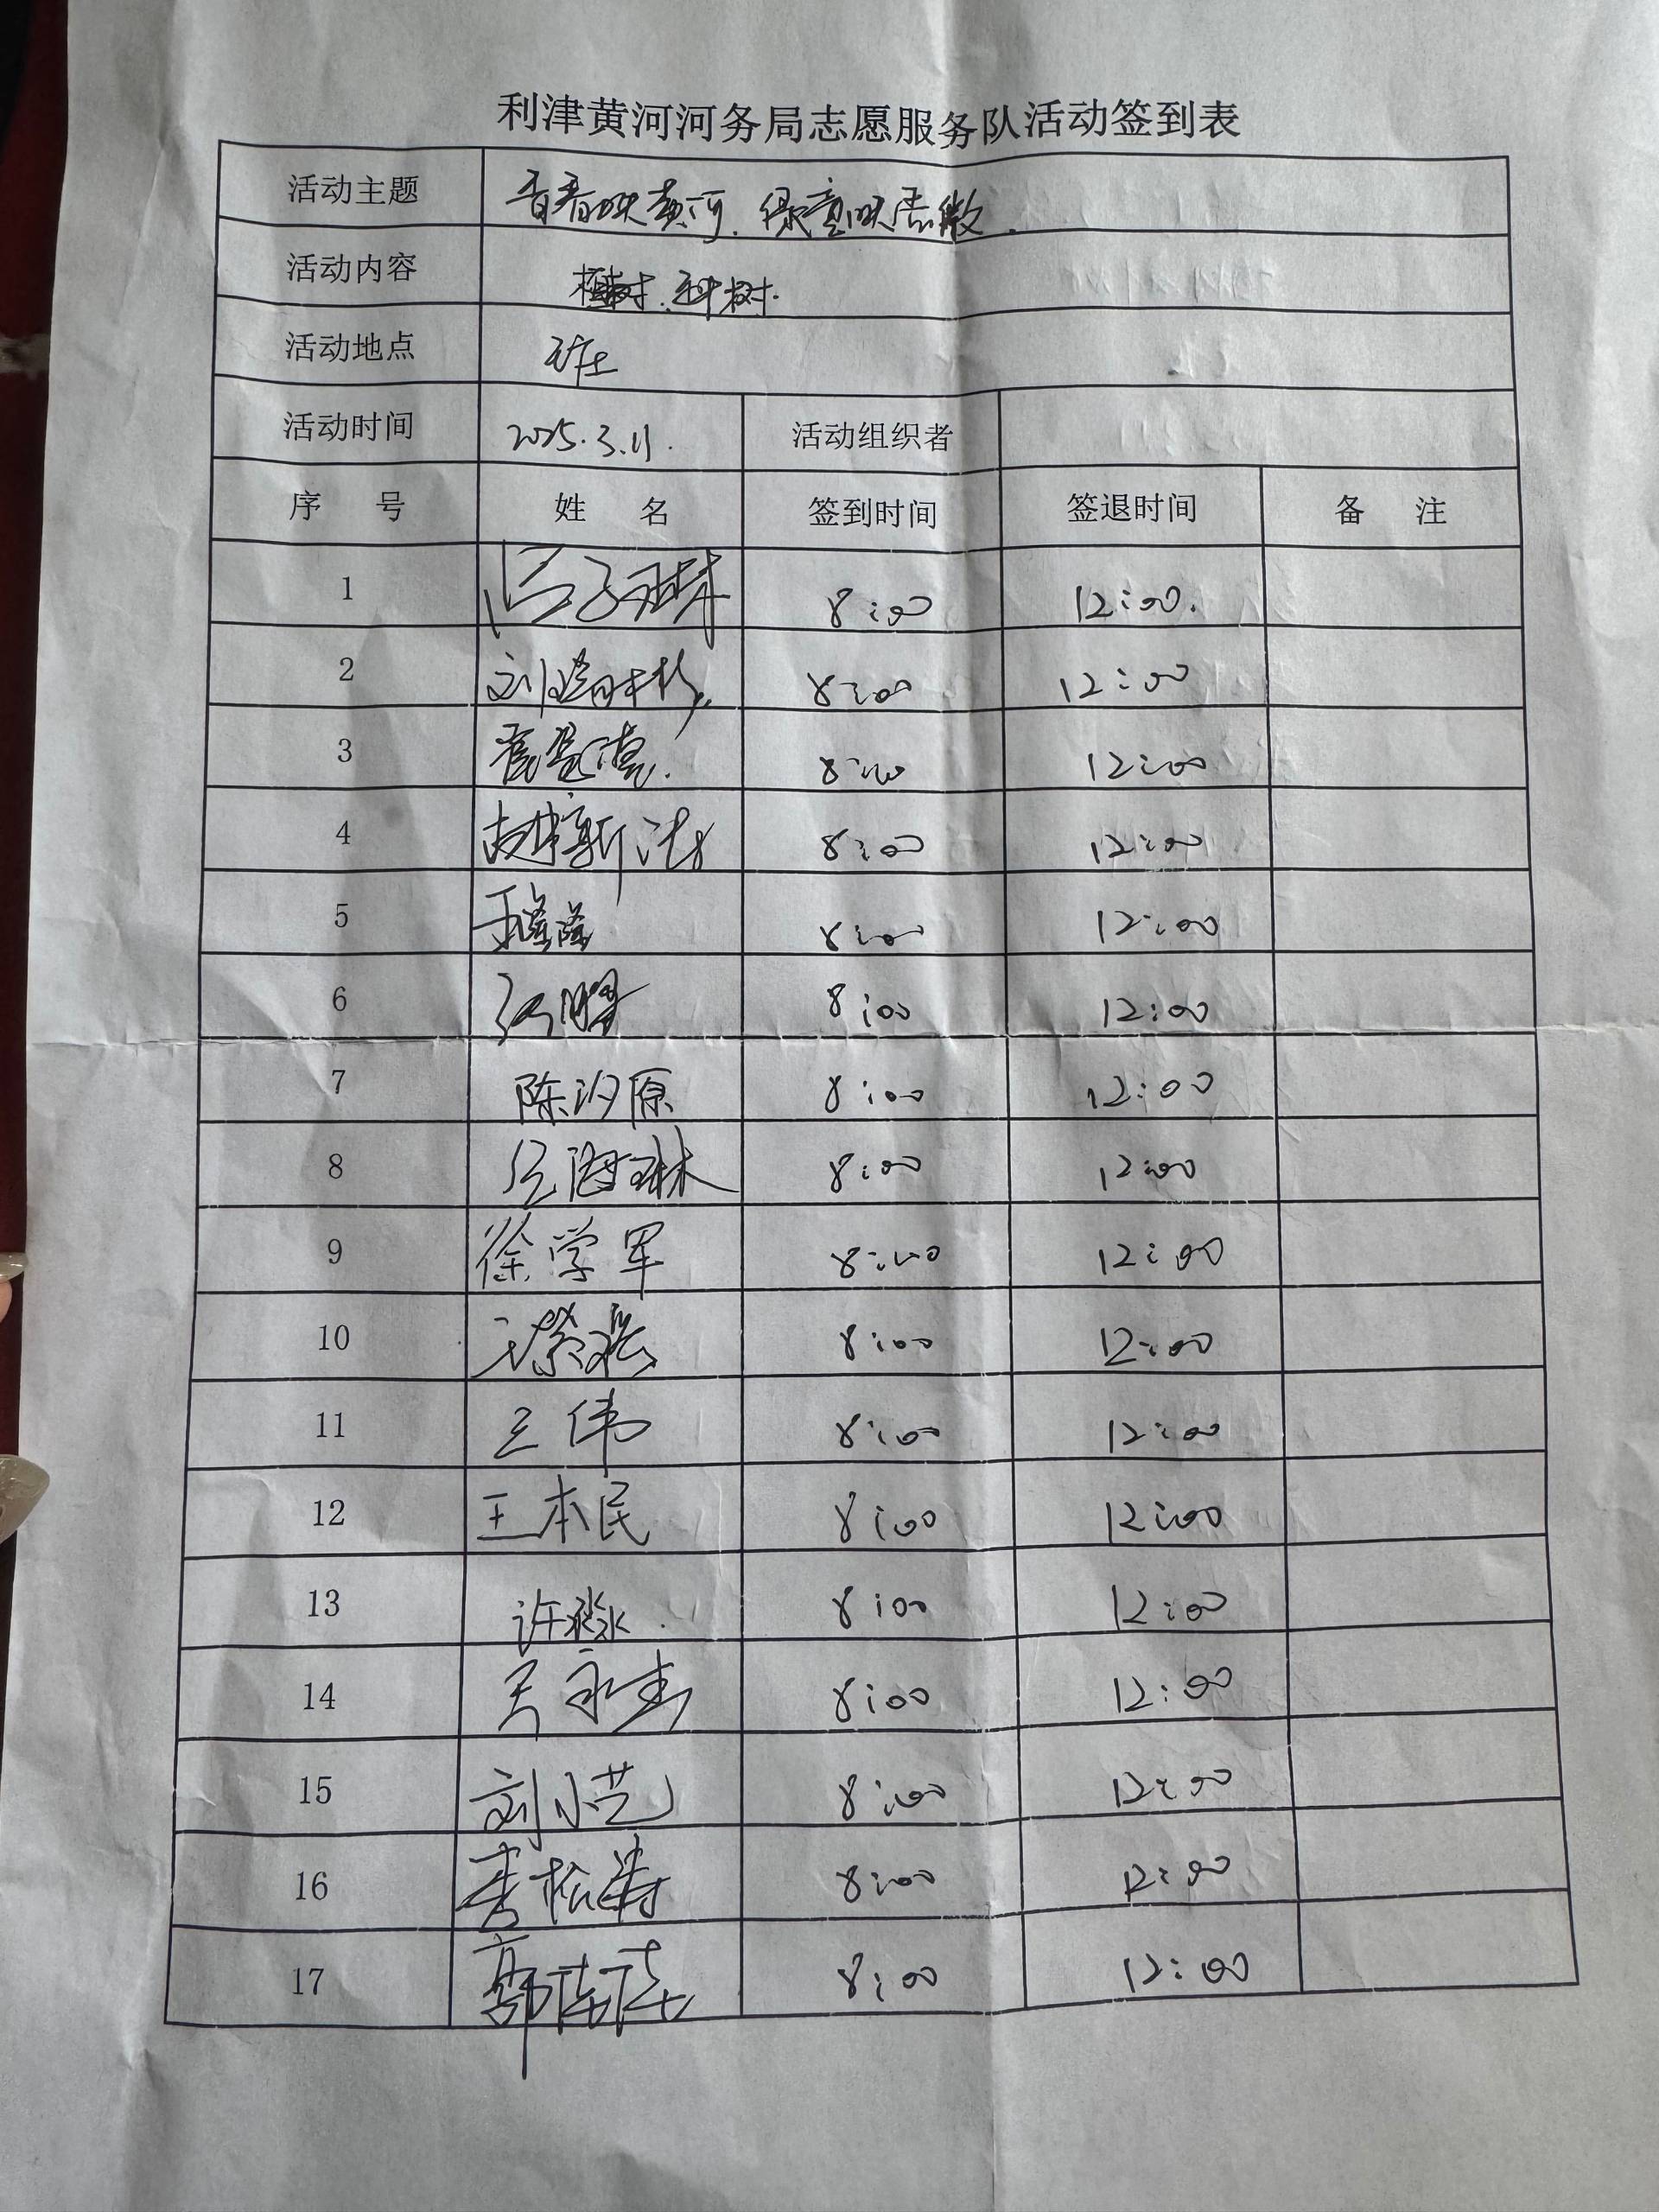 利津黄河河务局志愿服务队活动签到表
活动主题 青春映黄河.绿意映
活动内容 树.种树.
活动地点
活动时间 2025.3.11. 活动组织者
序 号 姓 名 签到时间 签退时间 备 注
1 8:00 12:00.
2 8:00 12:00
3 8:00 12:00
4 赵新 8:00 12:00
5 隆隆 8:00 12:00
6 8:00 12:00
7 陈汐原 8:00 12:00
8 海琳 8:00 12:00
9 徐学军 8:00 12:00
10 8:00 12:00
11 王伟 8:00 12:00
12 王本民 8:00 12:00
13 许淼 8:00 12:00
14 8:00 12:00
15 刘小艺 8:00 12:00
16 李松涛 8:00 12:00
17 郭 8:00 12:00